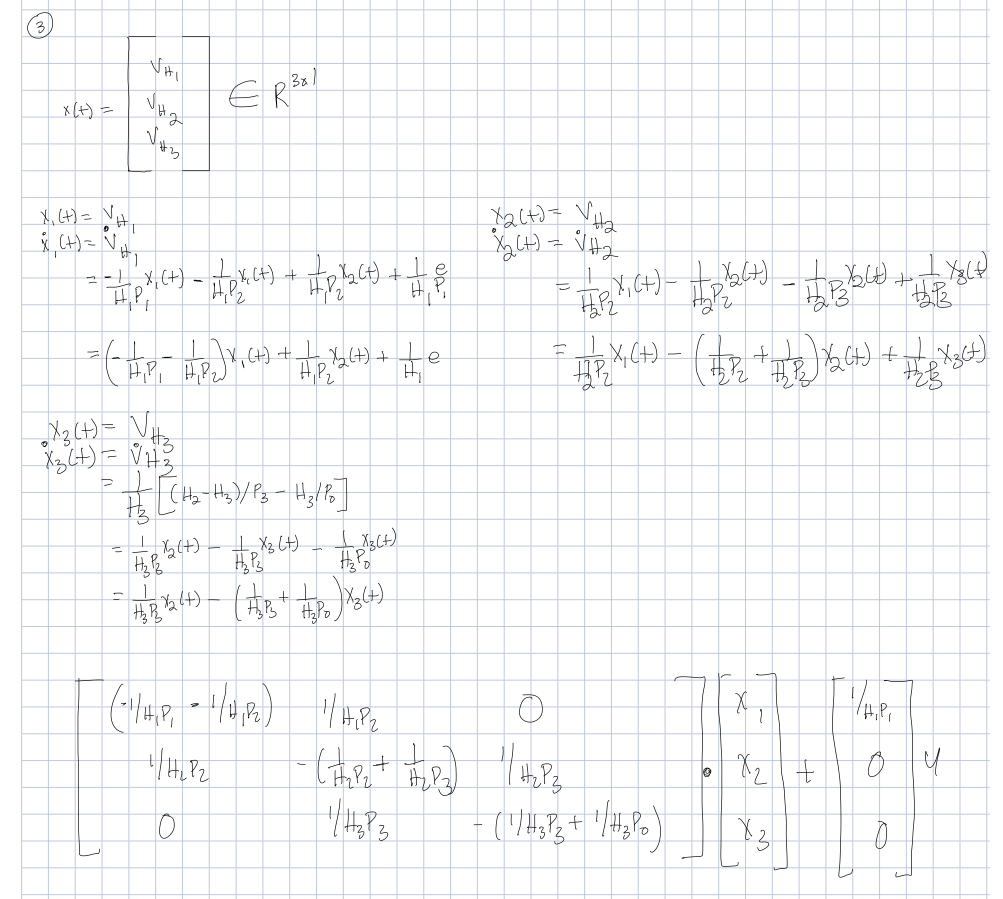 ③
x(t) = [V_H₁
V_H₂
V_H₃] ∈ R^{3x1}
x₁(t) = V_H₁
ẋ₁(t) = V̇_H₁
= -1/(H₁P₁) x₁(t) - 1/(H₁P₂) x₁(t) + 1/(H₁P₂) x₂(t) + 1/(H₁P₁) e
= (-1/(H₁P₁) - 1/(H₁P₂)) x₁(t) + 1/(H₁P₂) x₂(t) + 1/H₁ e
x₂(t) = V_H₂
ẋ₂(t) = V̇_H₂
= 1/(H₂P₂) x₁(t) - 1/(H₂P₂) x₂(t) - 1/(H₂P₃) x₂(t) + 1/(H₂P₃) x₃(t)
= 1/(H₂P₂) x₁(t) - (1/(H₂P₂) + 1/(H₂P₃)) x₂(t) + 1/(H₂P₃) x₃(t)
x₃(t) = V_H₃
ẋ₃(t) = V̇_H₃
= 1/H₃ [(H₂-H₃)/P₃ - H₃/P₀]
= 1/(H₃P₃) x₂(t) - 1/(H₃P₃) x₃(t) - 1/(H₃P₀) x₃(t)
= 1/(H₃P₃) x₂(t) - (1/(H₃P₃) + 1/(H₃P₀)) x₃(t)
[(-1/H₁P₁ - 1/H₁P₂) 1/H₁P₂ 0] [x₁] [1/H₁P₁]
[1/H₂P₂ -(1/(H₂P₂) + 1/(H₂P₃)) 1/H₂P₃] • [x₂] + [0] u
[0 1/H₃P₃ -(1/H₃P₃ + 1/H₃P₀)] [x₃] [0]